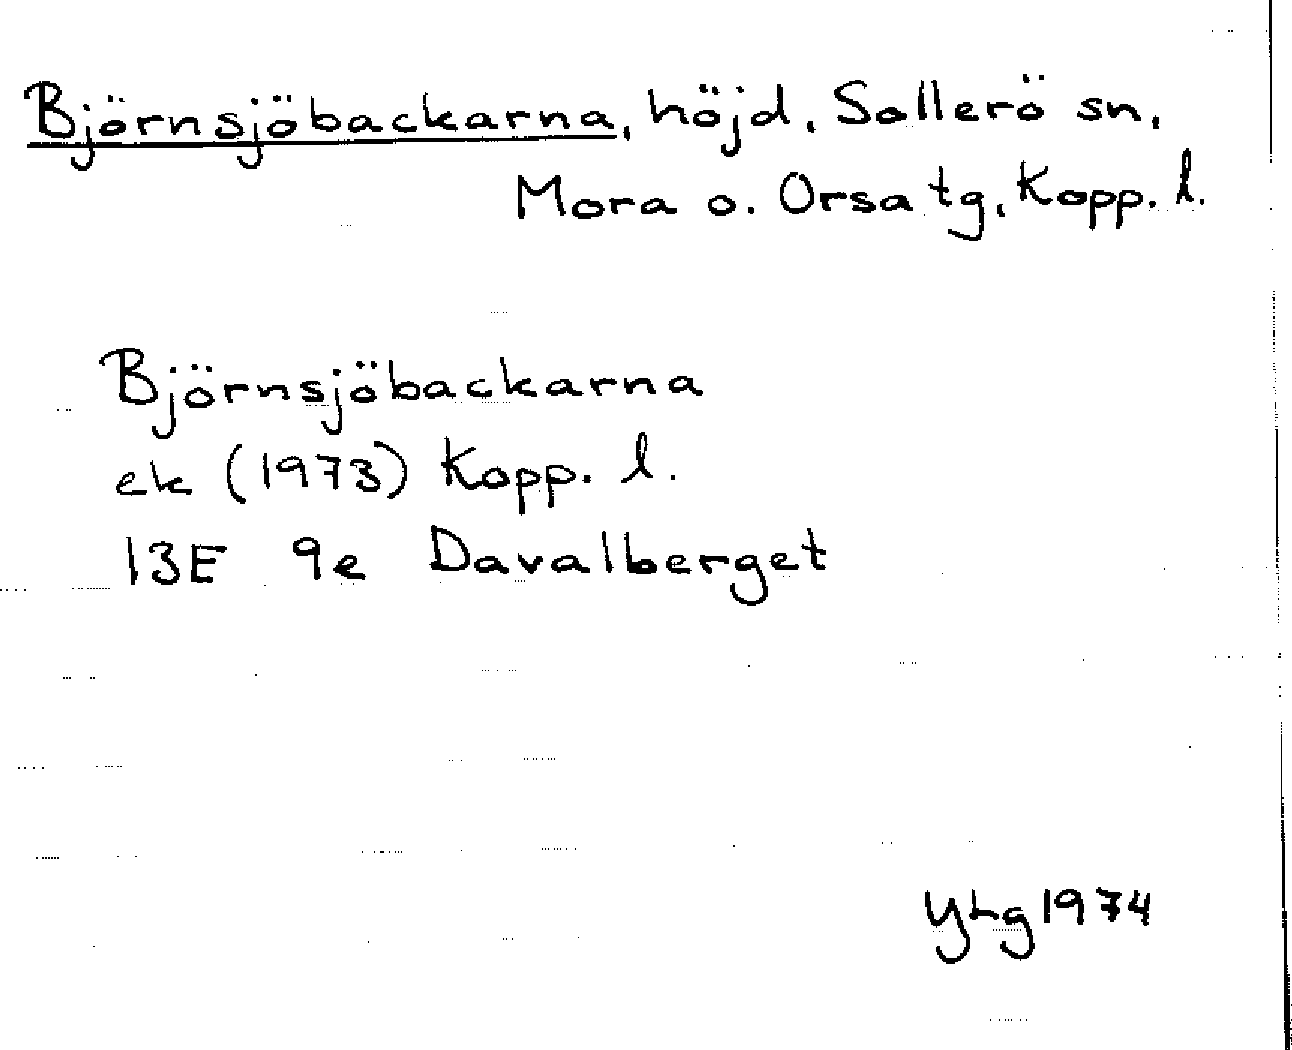 Björnsjöbackarna, höjd, Sollerö sn,
Mora o. Orsa tg, Kopp. l.
Björnsjöbackarna
ek (1973) Kopp. l.
13E 9e Davalberget
YLg 1974